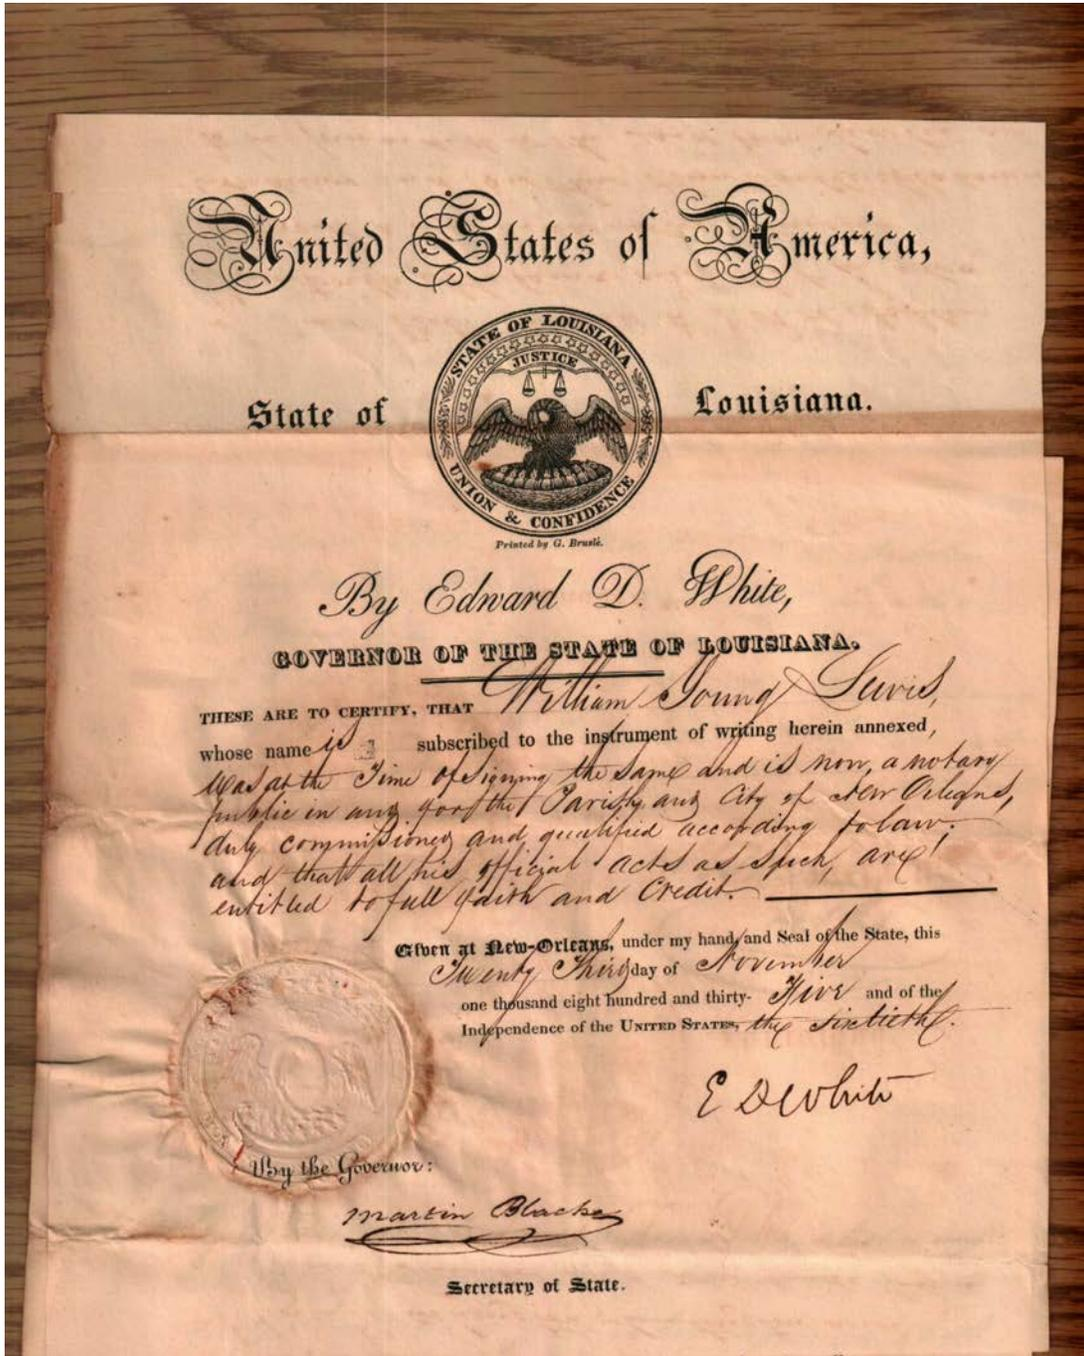 United States of America,
STATE OF LOUISIANA
JUSTICE
State of Louisiana.
UNION & CONFIDENCE
Printed by G. Bruslé.
By Edward D. White,
GOVERNOR OF THE STATE OF LOUISIANA.
THESE ARE TO CERTIFY, THAT William Young Lewis,
whose name is subscribed to the instrument of writing herein annexed,
was at the Time of signing the same and is now, a notary
public in and for the Parish and City of New Orleans,
duly commissioned and qualified according to law;
and that all his official acts as such, are
entitled to full faith and Credit.
Given at New-Orleans, under my hand, and Seal of the State, this
Twenty Third day of November
one thousand eight hundred and thirty- Five and of the
Independence of the UNITED STATES, the sixtieth.
E D White
By the Governor:
Martin Blache
Secretary of State.